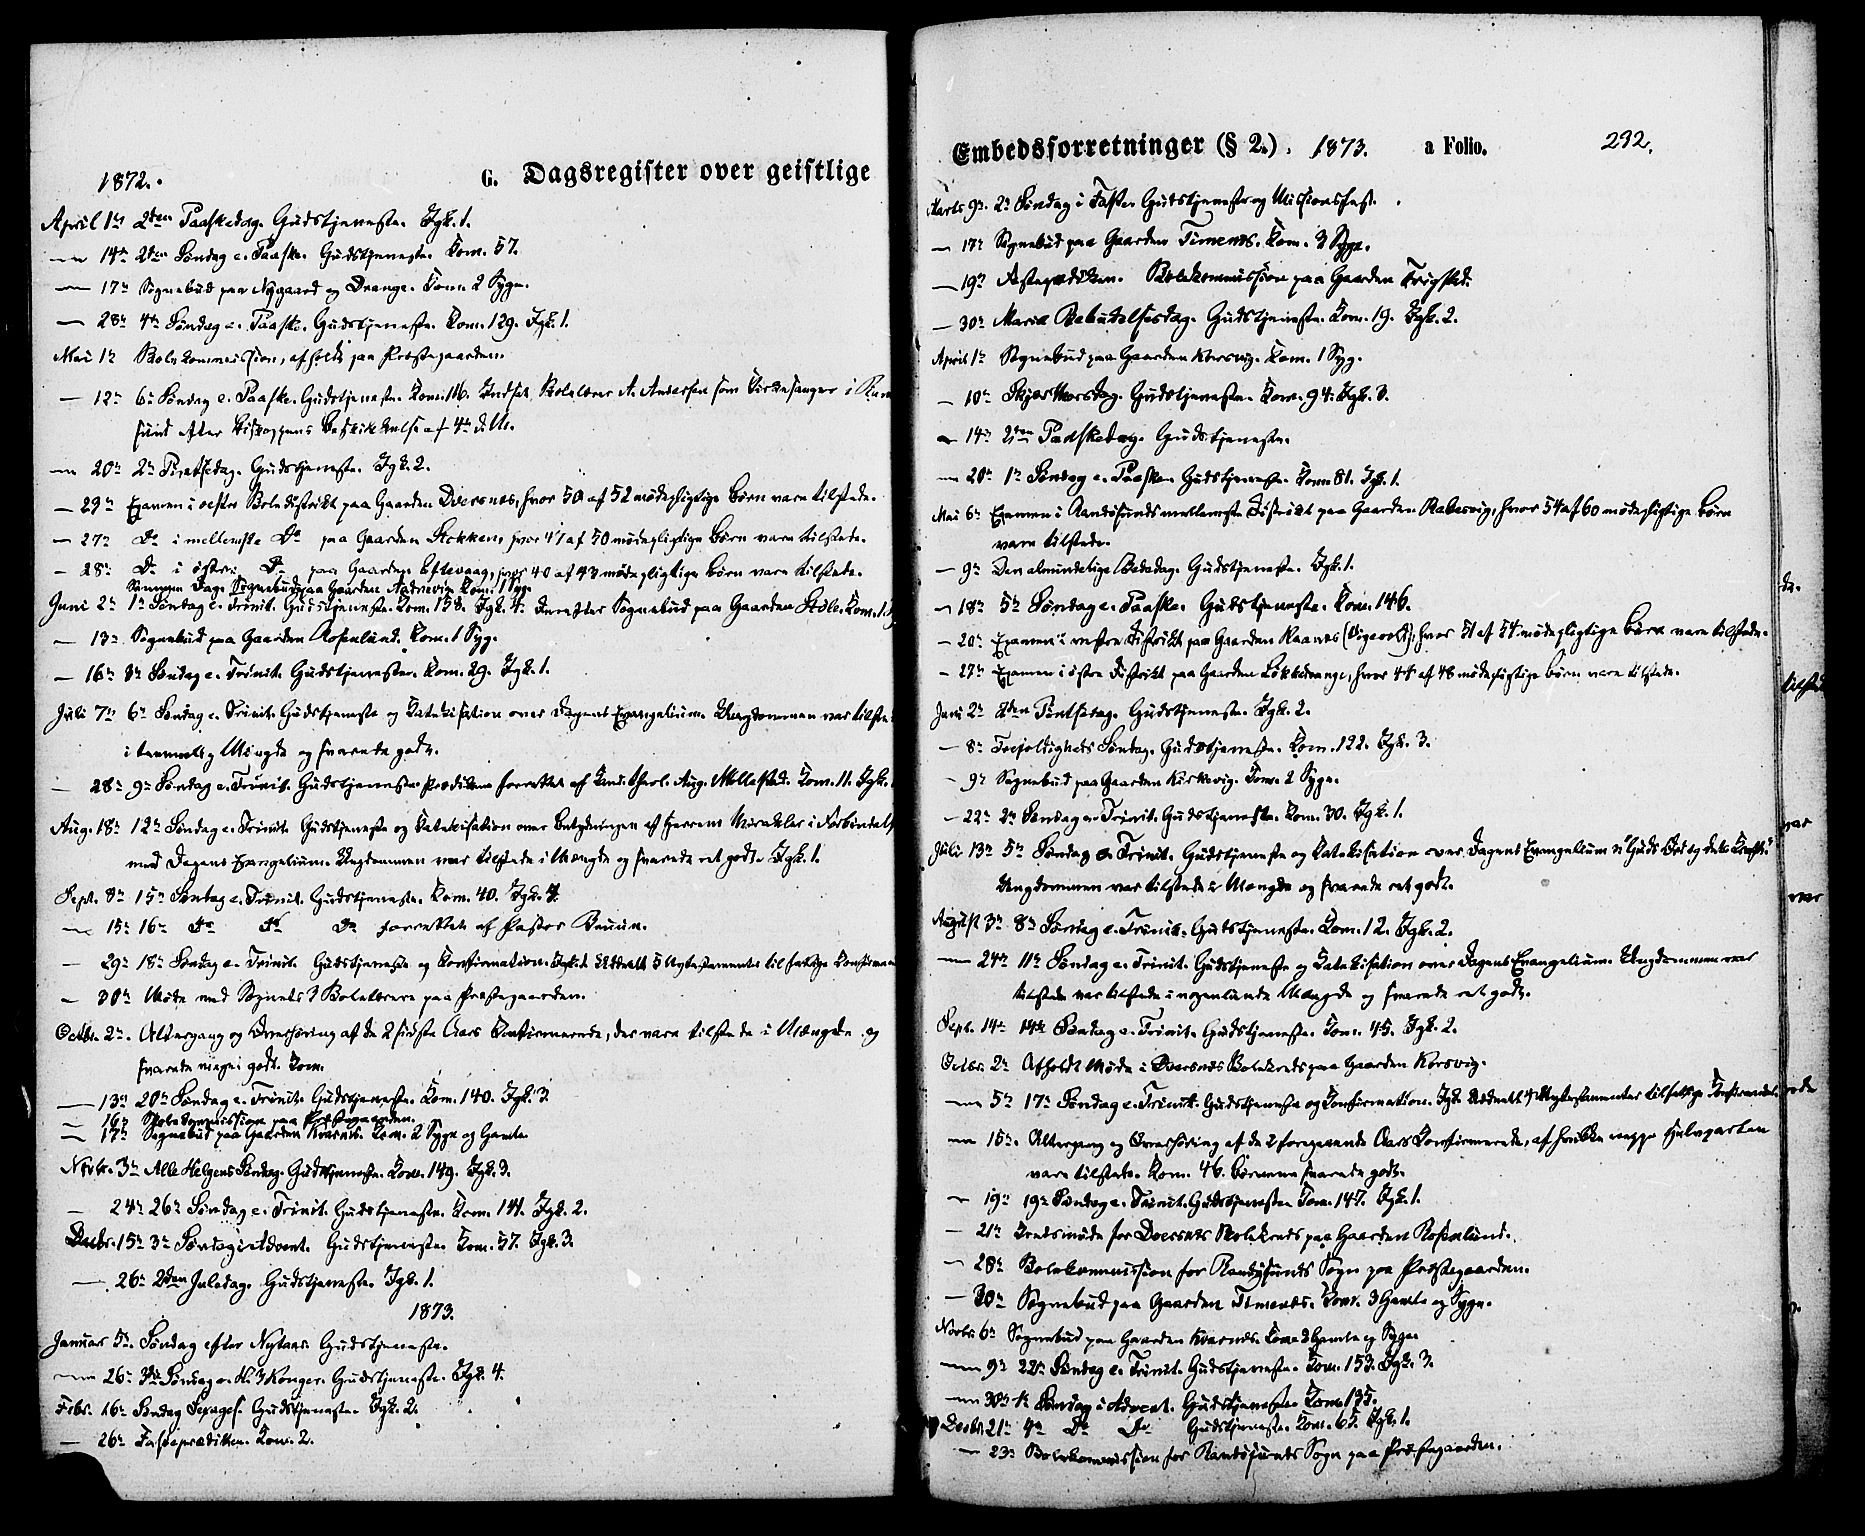 1872.
G. Dagsregister over geistlige
April 1ste 2den Paaskedag. Gudstjeneste. Jgk. 1.
— 14de 2den Søndag e. Paaske. Gudstjeneste. Kom. 57.
— 17de Sognebud paa Nygaard og Drange. Kom. 2 Syge.
— 28de 4de Søndag e. Paaske. Gudstjeneste. Kom. 129. Jgk. 1.
Mai 1ste Skolekommission, afholdt paa Præstegaarden.
— 12te 6te Søndag e. Paaske. Gudstjeneste. Kom. 116. Indsat Skolelærer A. Andersen som Kirkesanger i Ran
sund efter Biskoppens Beskikkelse af 4de d. M.
— 20de 2den Pintsedag. Gudstjeneste. Jgk. 2.
— 29de Examen i vestre Skoledistrikt paa Gaarden Dversnes, hvor 50 af 52 mødepligtige Børn vare tilstede.
— 27de Do i mellemste Do paa Gaarden Stokken, hvor 47 af 50 mødepligtige Børn vare tilstede.
— 28de Do i østre Do paa Gaarden Eftevaag, hvor 40 af 43 mødepligtige Børn vare tilstede.
Samme Dag Sognebud paa Gaarden Kom. 1 Syg.
Juni 2den 1ste Søndag e. Trinit. Gudstjeneste. Kom. 138. Jgk. 4. Derefter Sognebud paa Gaarden Stole. Kom. 1
— 13de Sognebud paa Gaarden Rosenlund. Kom. 1 Syg.
— 16de 3die Søndag e. Trinit. Gudstjeneste. Kom. 29. Jgk. 1.
Juli 7de 6te Søndag e. Trinit. Gudstjeneste og Katekisation over Dagens Evangelium. Ungdommen var tilste
i temmelig Mængde og svarede godt.
— 28de 9de Søndag e. Trinit. Gudstjeneste. Prædiken forrettet af Cand. theol. Aug. Møllestad. Kom. 11. Jgk.
Aug. 18de 12te Søndag e. Trinit. Gudstjeneste og Katekisation over Betydningen af Herrens Mirakler i Forbindelse
med Dagens Evangelium. Ungdommen var tilstede i Mængde og svarede ret godt. Jgk. 1.
Sept. 8de 15de Søndag e. Trinit. Gudstjeneste. Kom. 40. Jgk.
— 15de 16de Do Do Do forrettet af Pastor
— 29de 18de Søndag e. Trinit. Gudstjeneste og Confirmation. Uddeelt 5 Nytestamenter til fattige Confirmer
— 30te Møde med Sognets 3 Skolelærere paa Præstegaarden.
Octbr. 2den Altergang og Overhøring af de 2 sidste Aars Confirmerede, der vare tilstede i Mængde og
svarede meget godt. Kom.
— 13de 20de Søndag e. Trinit. Gudstjeneste. Kom. 140. Jgk. 3.
— 16de Skolekommission paa Præstegaarden.
— 17de Sognebud paa Gaarden Kom. 2 Syge og Gamle.
Novbr. 3die Alle Helgens Søndag. Gudstjeneste. Kom. 149. Jgk. 3.
— 24de 26de Søndag e. Trinit. Gudstjeneste. Kom. 141. Jgk. 2.
Decbr. 15de 3die Søndag i Advent. Gudstjeneste. Kom. 57. Jgk. 3.
— 26de 2den Juledag. Gudstjeneste. Jgk. 1.
1873.
Januar 5te Søndag efter Nytaar. Gudstjeneste.
— 26de 3die Søndag e. H. 3 Konger. Gudstjeneste. Jgk. 4.
Febr. 16de Søndag Sexages. Gudstjeneste. Jgk. 2.
— 26de Fasteprædiken. Kom. 2.
Embedsforretninger (§ 2.). 1873. a Folio. 292.
Marts 9de 2den Søndag i Faste. Gudstjeneste og Missionsfest.
— 17de Sognebud paa Gaarden Timenes. Kom. 3 Syge.
— 19de Fasteprædiken. Skolekommission paa Gaarden Frigstad.
— 30te Mariæ Bebudelsesdag. Gudstjeneste. Kom. 19. Jgk. 2.
April 1ste Sognebud paa Gaarden Korsvig. Kom. 1 Syg.
— 10de Skjærthorsdag. Gudstjeneste. Kom. 94. Jgk. 3.
— 14de 2den Paaskedag. Gudstjeneste.
— 20de 1ste Søndag e. Paaske. Gudstjeneste. Kom. 81. Jgk. 1.
Mai 6te Examen i Randøsunds mellemste Distrikt paa Gaarden Rabesvig, hvor 54 af 60 mødepligtige Børn
vare tilstede.
— 9de Den almindelige Bededag. Gudstjeneste. Jgk. 1.
— 18de 5te Søndag e. Paaske. Gudstjeneste. Kom. 146.
— 20de Examen i vestre Distrikt paa Gaarden hvor 51 af 54 mødepligtige Børn vare tilstede.
— 27de Examen i østre Distrikt paa Gaarden Løkkedrange, hvor 44 af 48 mødepligtige Børn vare tilstede.
Juni 2den 2den Pintsedag. Gudstjeneste. Jgk. 2.
— 8de Trefoldigheds Søndag. Gudstjeneste. Kom. 122. Jgk. 3.
— 9de Sognebud paa Gaarden Kirkevig. Kom. 2 Syge.
— 22de 2den Søndag e. Trinit. Gudstjeneste. Kom. 30. Jgk. 1.
Juli 13de 5te Søndag e. Trinit. Gudstjeneste og Katekisation over Dagens Evangelium "Guds Ord og dets Kraft."
Ungdommen var tilstede i Mængde og svarede ret godt.
August 3die 8de Søndag e. Trinit. Gudstjeneste. Kom. 12. Jgk. 2.
— 24de 11te Søndag e. Trinit. Gudstjeneste og Katekisation over Dagens Evangelium. Ungdommen var
tilstede var tilstede i nogenlunde Mængde og svarede ret godt.
Sept. 14de 14de Søndag e. Trinit. Gudstjeneste. Kom. 45. Jgk. 2.
Octbr. 2den Afholdt Møde i Dversnes Skolekreds paa Gaarden Korsvig.
— 5te 17de Søndag e. Trinit. Gudstjeneste og Confirmation. Jgk. Uddeelt 4 Nytestamenter til fattige Confirmander.
— 15de Altergang og Overhøring af de 2 foregaaende Aars Confirmerede, af hvilke neppe Halvparten
vare tilstede. Kom. 46. Børnene svarede godt.
— 19de 19de Søndag e. Trinit. Gudstjeneste. Kom. 147. Jgk. 1.
— 21de Kredsmøde for Dversnes Skolekreds paa Gaarden Rosenlund.
— 28de Skolekommission for Randøsunds Sogn paa Præstegaarden.
— 30te Sognebud paa Gaarden Timenes. Kom. 3 Gamle og Syge.
Novbr. 6te Sognebud paa Gaarden Kom. 2 Gamle og Syge.
— 9de 22de Søndag e. Trinit. Gudstjeneste. Kom. 153. Jgk. 3.
— 30te 1ste Søndag i Advent. Gudstjeneste. Kom. 135.
Decbr. 21de 4de Do Do Gudstjeneste. Kom. 65. Jgk. 1.
— 23de Skolekommission for Randøsunds Sogn paa Præstegaarden.